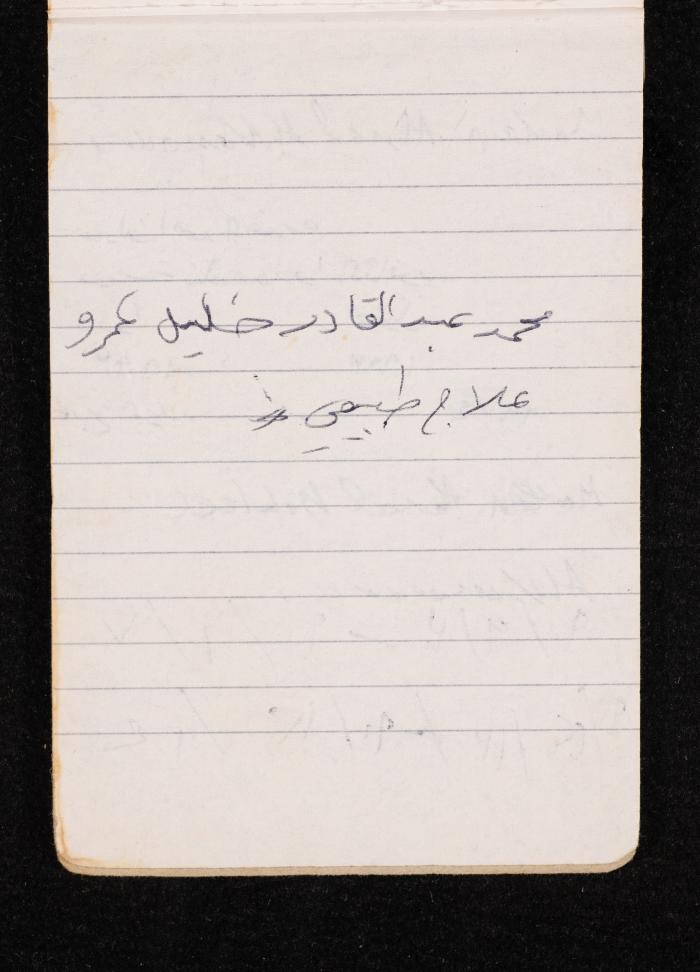 محمد عبد القادر خليل عمرو
علاج طبيعي